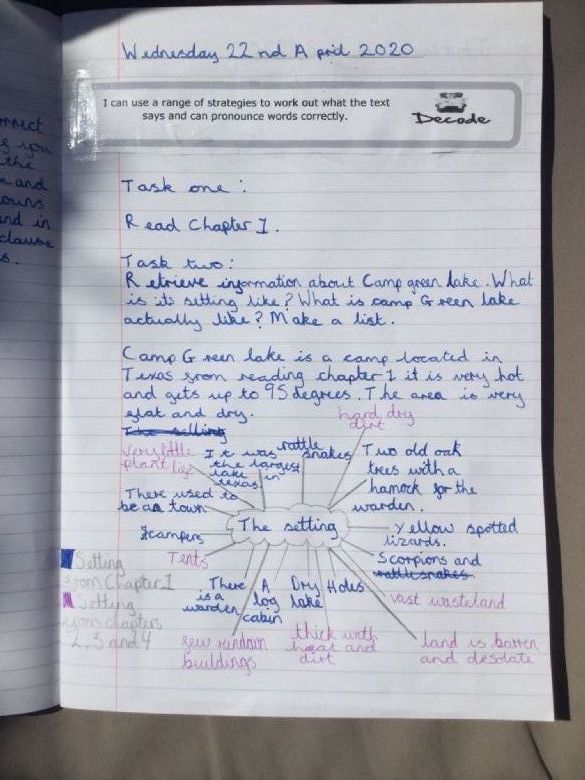 Wednesday 22nd April 2020
I can use a range of strategies to work out what the text
says and can pronounce words correctly.
Decode
Task one :
Read Chapter 1.
Task two :
Retrieve information about Camp green lake. What
is it's setting like? What is camp Green lake
actually like? Make a list.
Camp Green lake is a camp located in
Texas from reading chapter 1 it is very hot
and gets up to 95 degrees. The area is very
flat and dry.
The setting
hard dry
dirt
Very little
plant life
It was
the largest
lake in
texas
rattle
snakes
Two old oak
trees with a
hamock for the
warden.
There used to
be a town
The setting
Yellow spotted
lizards.
campers
Tents
Scorpions and
rattlesnakes
There
is a
warden
A
log
cabin
Dry
lake
Holes
vast wasteland
few rundown
buildings
thick with
heat and
dirt
land is barren
and desolate
Setting
from Chapter 1
Setting
from chapters
2, 3 and 4
the
and
and in
clause